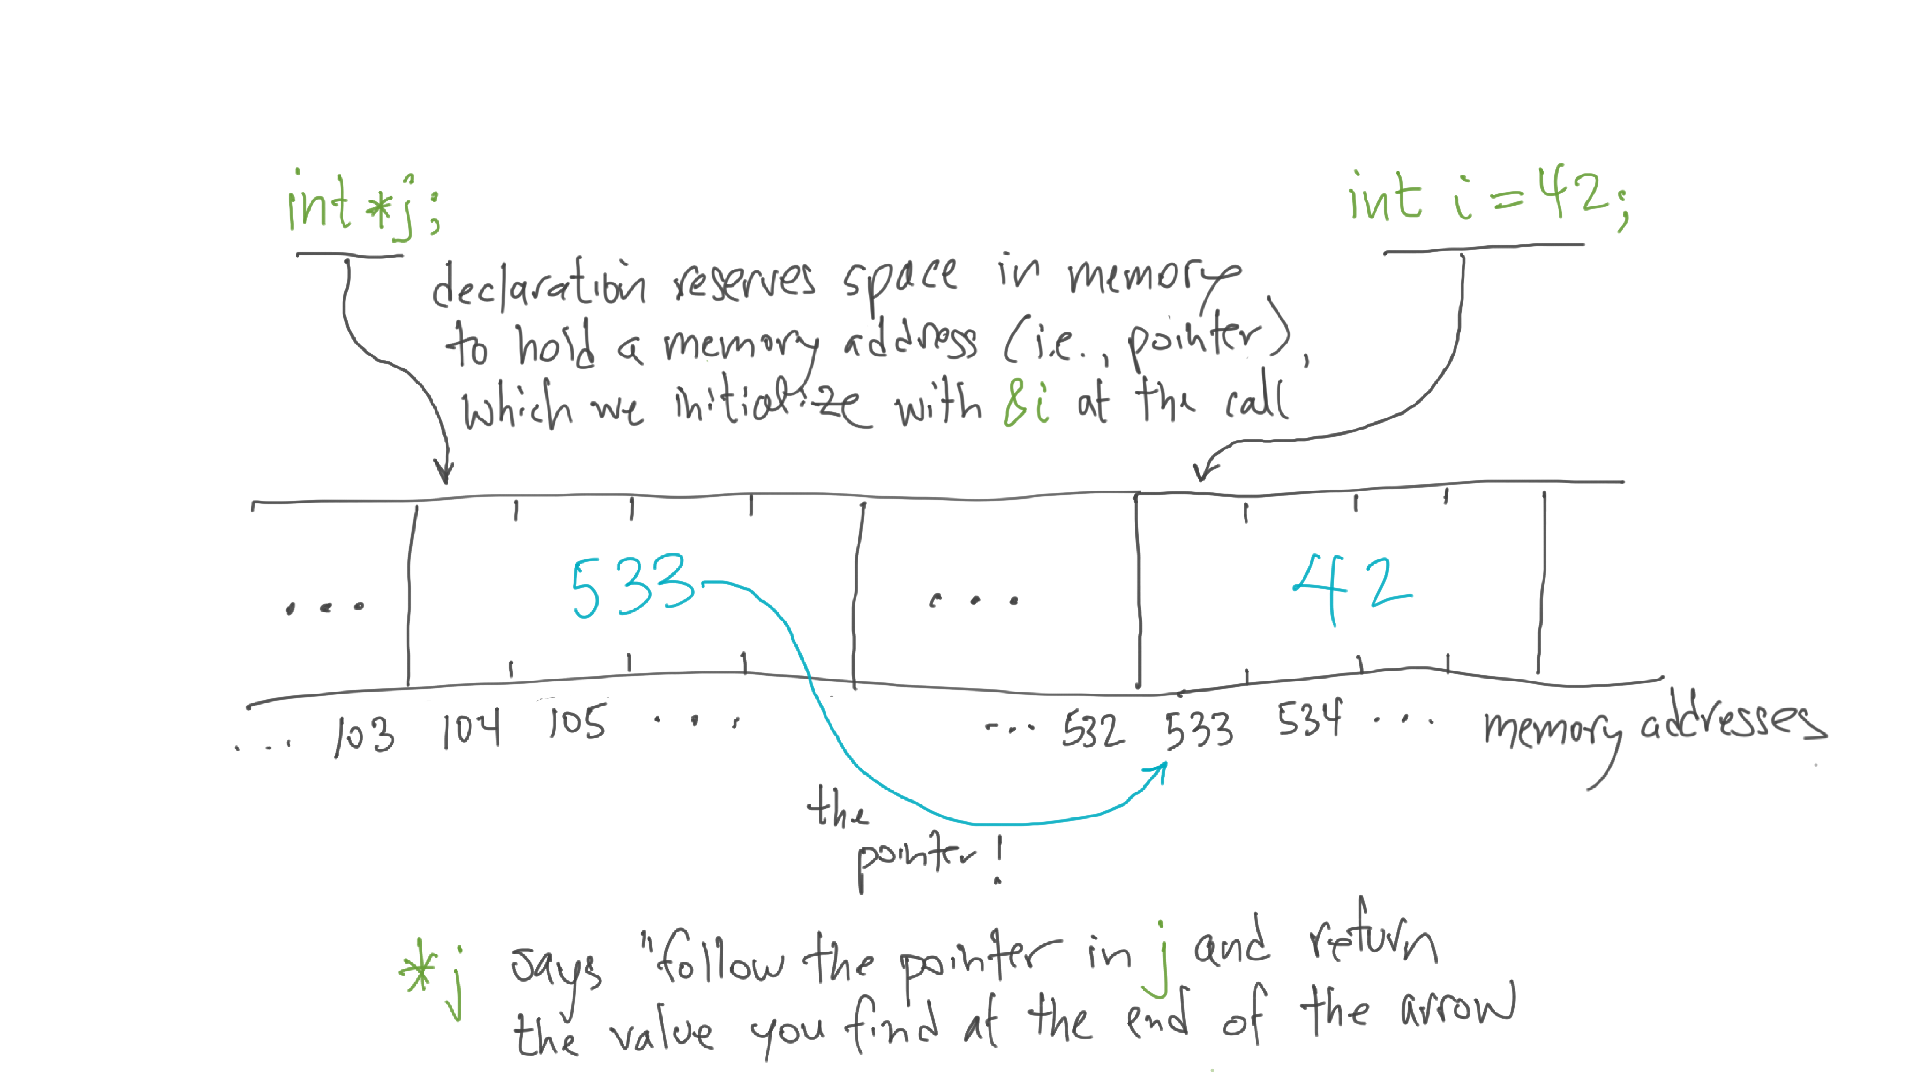 int *j;
int i = 42;
declaration reserves space in memory
to hold a memory address (i.e., pointer),
which we initialize with &i at the call
... 533 ... 42
... 103 104 105 ... ... 532 533 534 ... memory addresses
the
pointer!
*j says "follow the pointer in j and return
the value you find at the end of the arrow